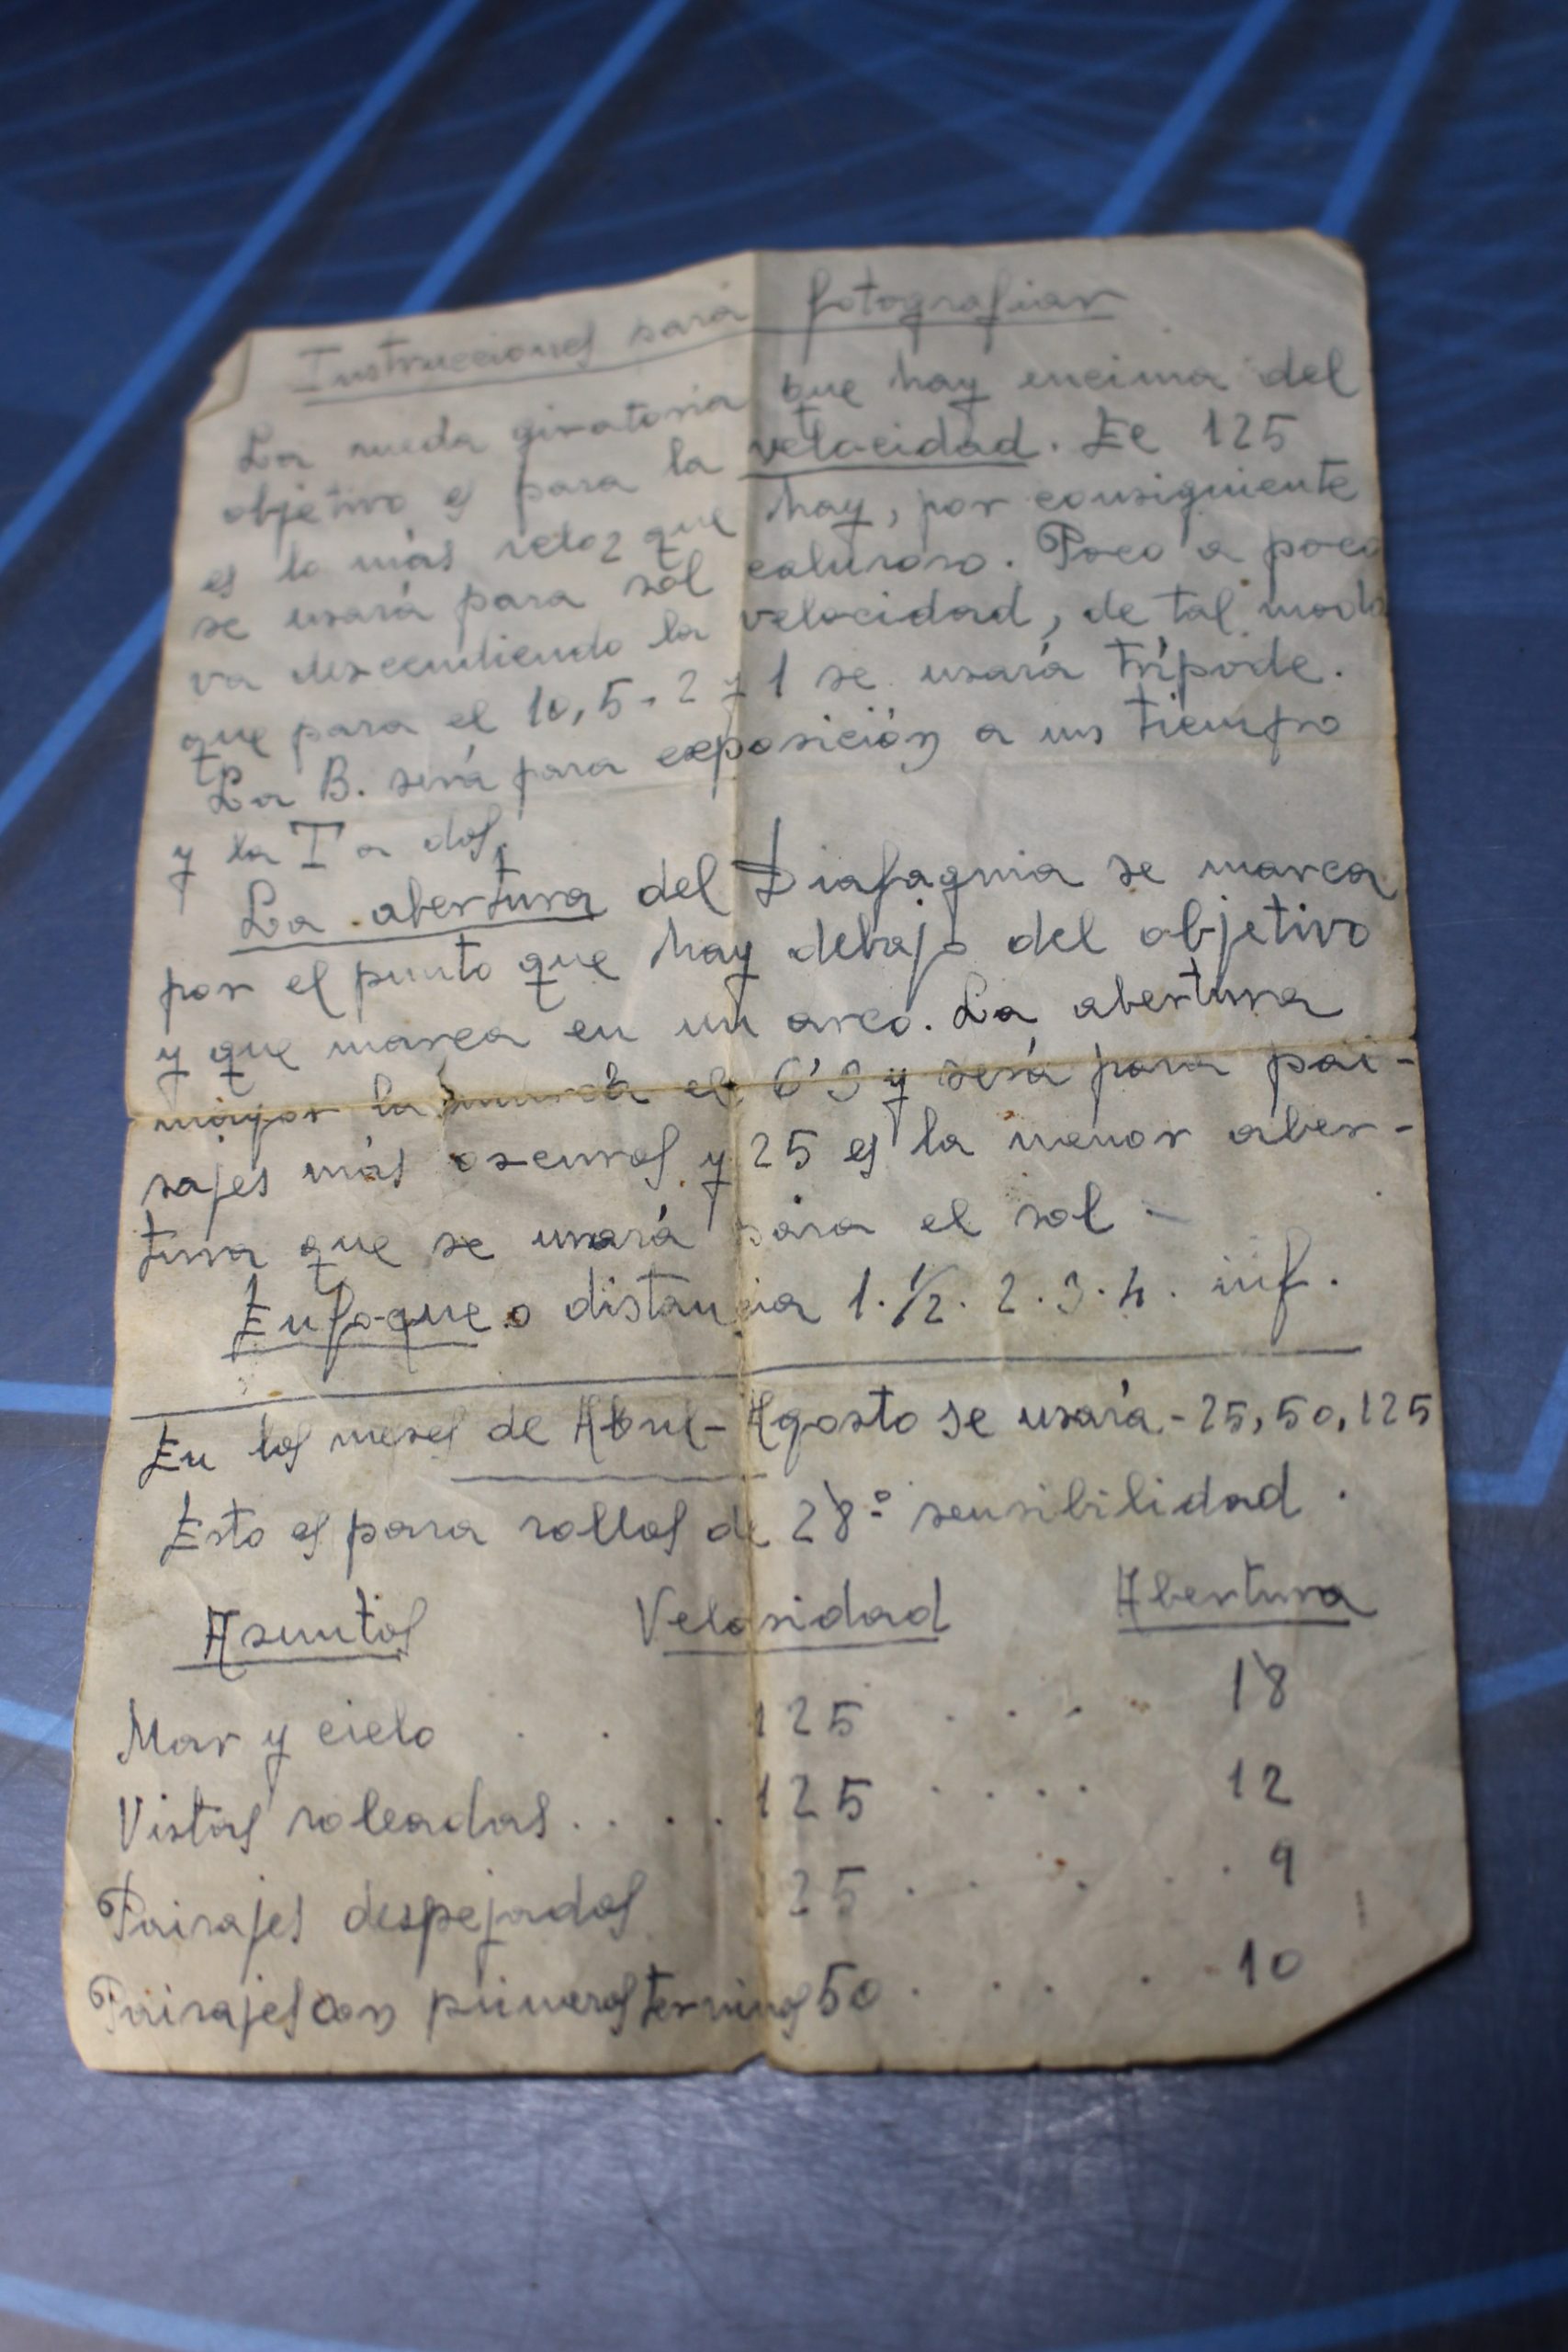 Instrucciones para fotografiar
La rueda giratoria que hay encima del
objetivo es para la velocidad. Ee 125
es lo más veloz que hay, por consiguiente
se usará para sol caluroso. Poco a poco
va descendiendo la velocidad, de tal modo
que para el 10, 5 - 2 y 1 se usará trípode.
La B. será para exposición a un tiempo
y la T a dos.
La abertura del Diafagma se marca
por el punto que hay debajo del objetivo
y que marca en un arco. La abertura
mayor la marca el 6'3 y será para pai-
sajes más oscuros y 25 es la menor aber-
tura que se usará para el sol -
Enfoque o distancia 1. 1/2. 2. 3. 4. inf.
En los meses de Abril - Agosto se usará - 25, 50, 125
Esto es para rollos de 28º sensibilidad.
Asuntos Velosidad Abertura
Mar y cielo . . 125 . . . . 18
Vistas soleadas . . . . 125 . . . . 12
Paisajes despejados 25 . . . . . 9
Paisajes con primeros terminos 50 . . . . 10